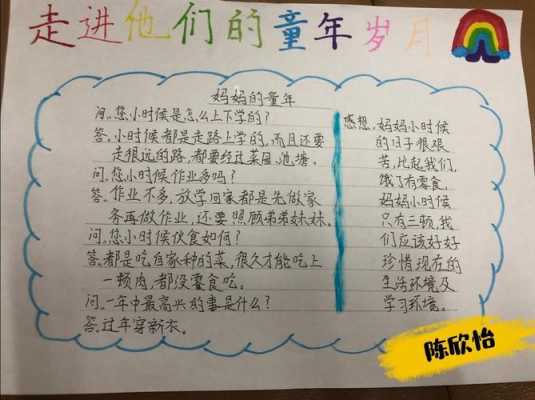 走进他们的童年岁月
妈妈的童年
问:您小时候是怎么上下学的?
答:小时候都是走路上学的,而且还要
走很远的路,都要经过菜园、池塘。
问:您小时候作业多吗?
答:作业不多,放学回家都是先做家
务再做作业,还要照顾弟弟妹妹。
问:您小时候伙食如何?
答:都是吃自家种的菜,很久才能吃上
一顿肉,都没零食吃。
问:一年中最高兴的事是什么?
答:过年穿新衣。
感想:妈妈小时候
的日子很艰
苦,比起我们,
饿了有零食,
妈妈小时候
只有三顿,我
们应该好好
珍惜现在的
生活环境及
学习环境。
陈欣怡